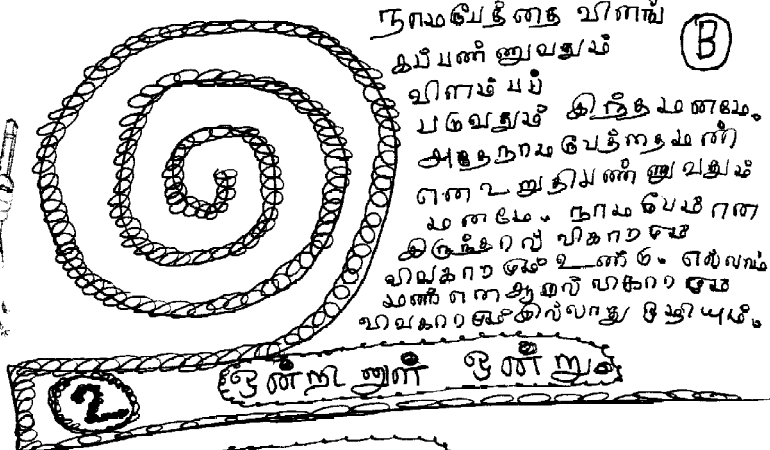 நாமபேதத்தை விளங்
கப்பண்ணுவதும்
விளம்பப்
படுவதும் இந்தமனமே.
அந்தநாமபேதத்தைமண்
என உறுதிபண்ணுவதும்
மனமே. நாமபேதமான
இருந்தால் விகாரமும்
விவகாரமும் உண்டு. எல்லாம்
மண் என ஆனால் விகாரமும்
விவகாரமும்இல்லாது ஒழியும்.
B
ஒன்றினுள் ஒன்று
2